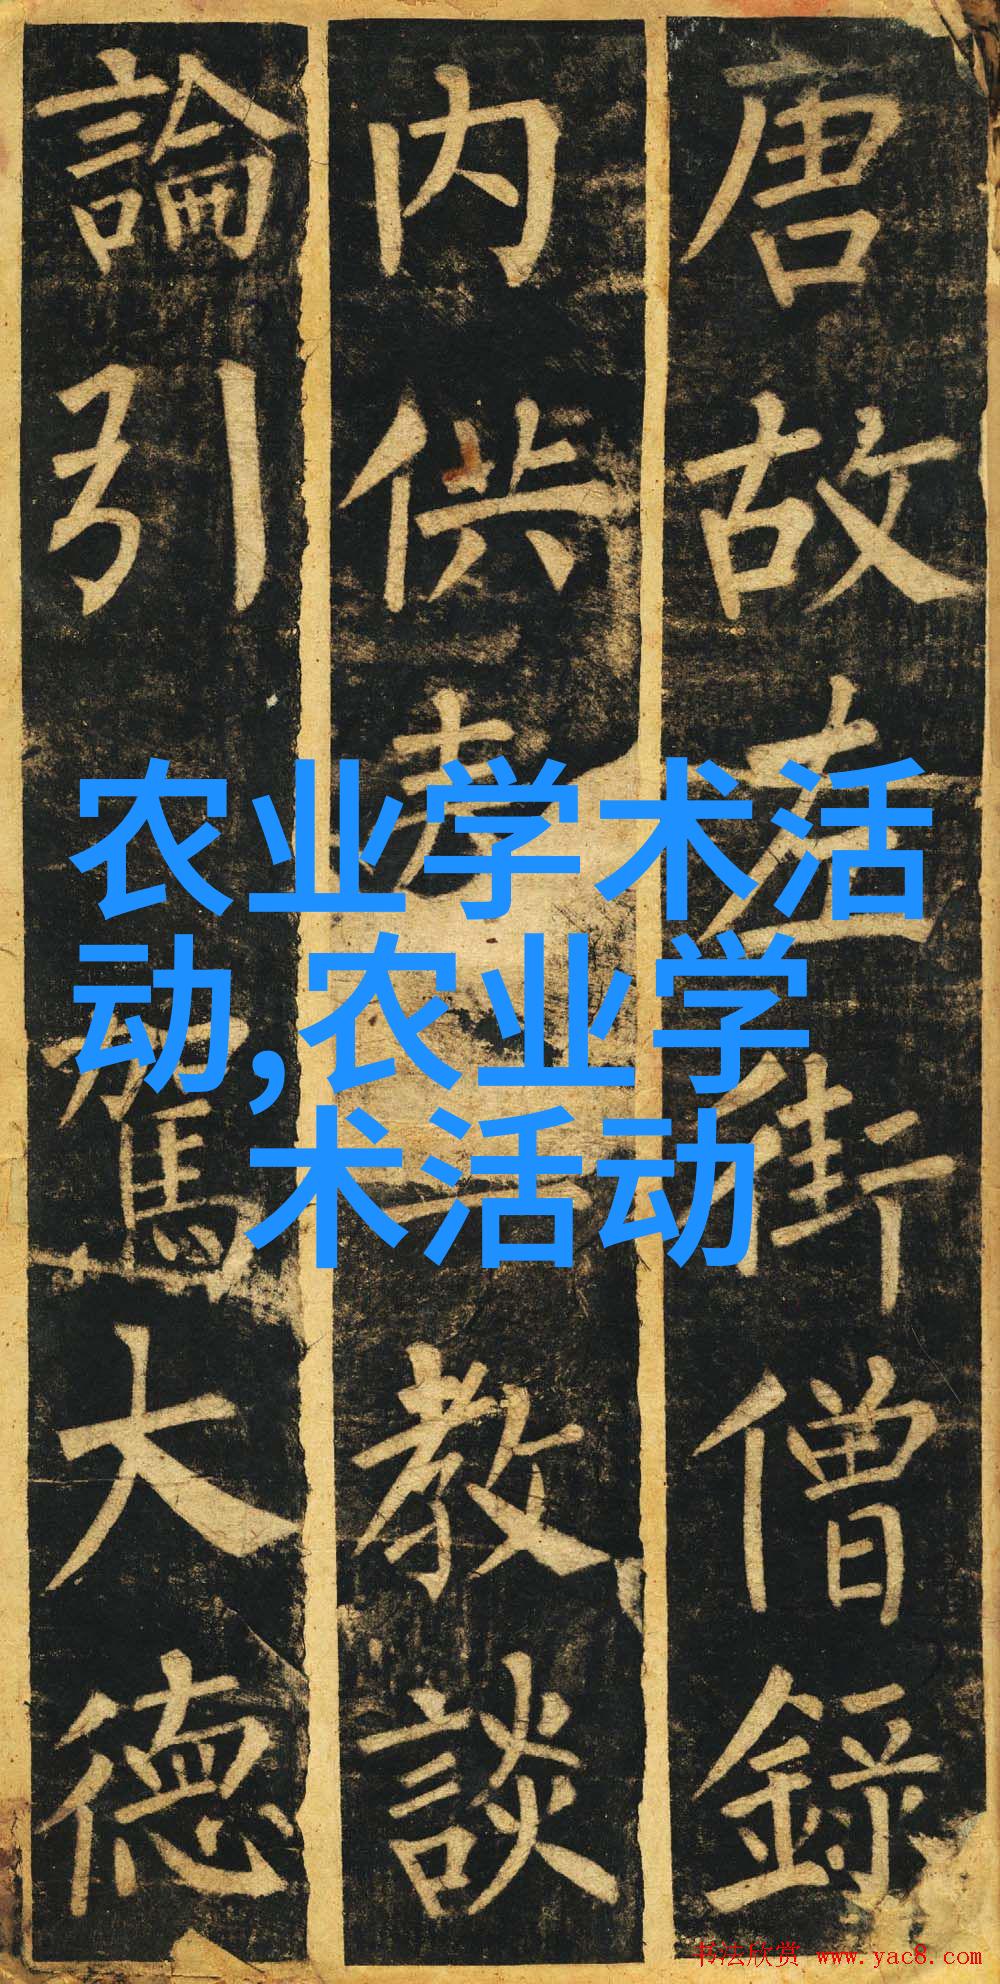 唐故左街僧錄
内供奉三教談
論引駕大德
农业学术活
动,农业学
术活动
书法欣赏 www.yac8.com